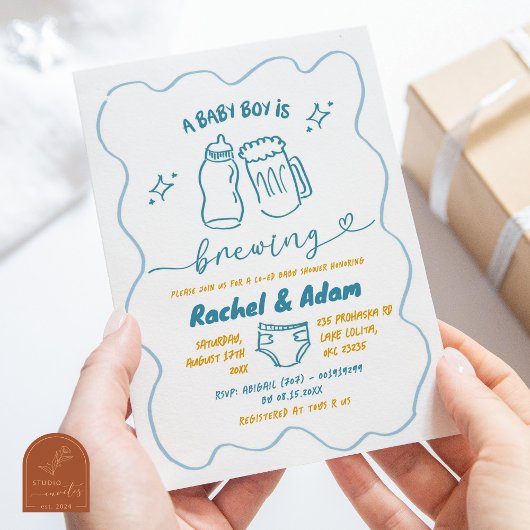 A BABY BOY is
brewing
PLEASE JOIN US FOR A CO-ED BABY SHOWER HONORING
Rachel & Adam
SATURDAY,
AUGUST 17TH
20XX
235 PROHASKA RD
LAKE LOLITA,
OKC 23235
RSVP: ABIGAIL (707) - 001919299
BY 08.15.20XX
REGISTERED AT TOYS R US
STUDIO
invites
est. 2024